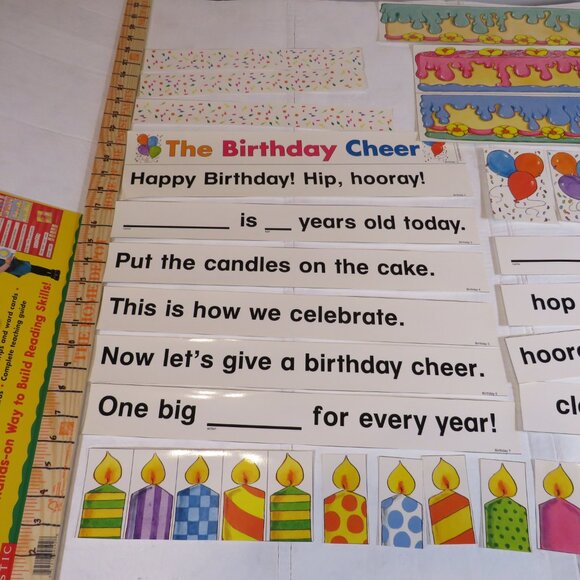 The Birthday Cheer
Happy Birthday! Hip, hooray!
__________ is __ years old today.
Put the candles on the cake.
This is how we celebrate.
Now let's give a birthday cheer.
One big ________ for every year!
hop
hoora
cl
Hands-on Way to Build Reading Skills!
• Complete teaching guide
THE HOME DE
STIC